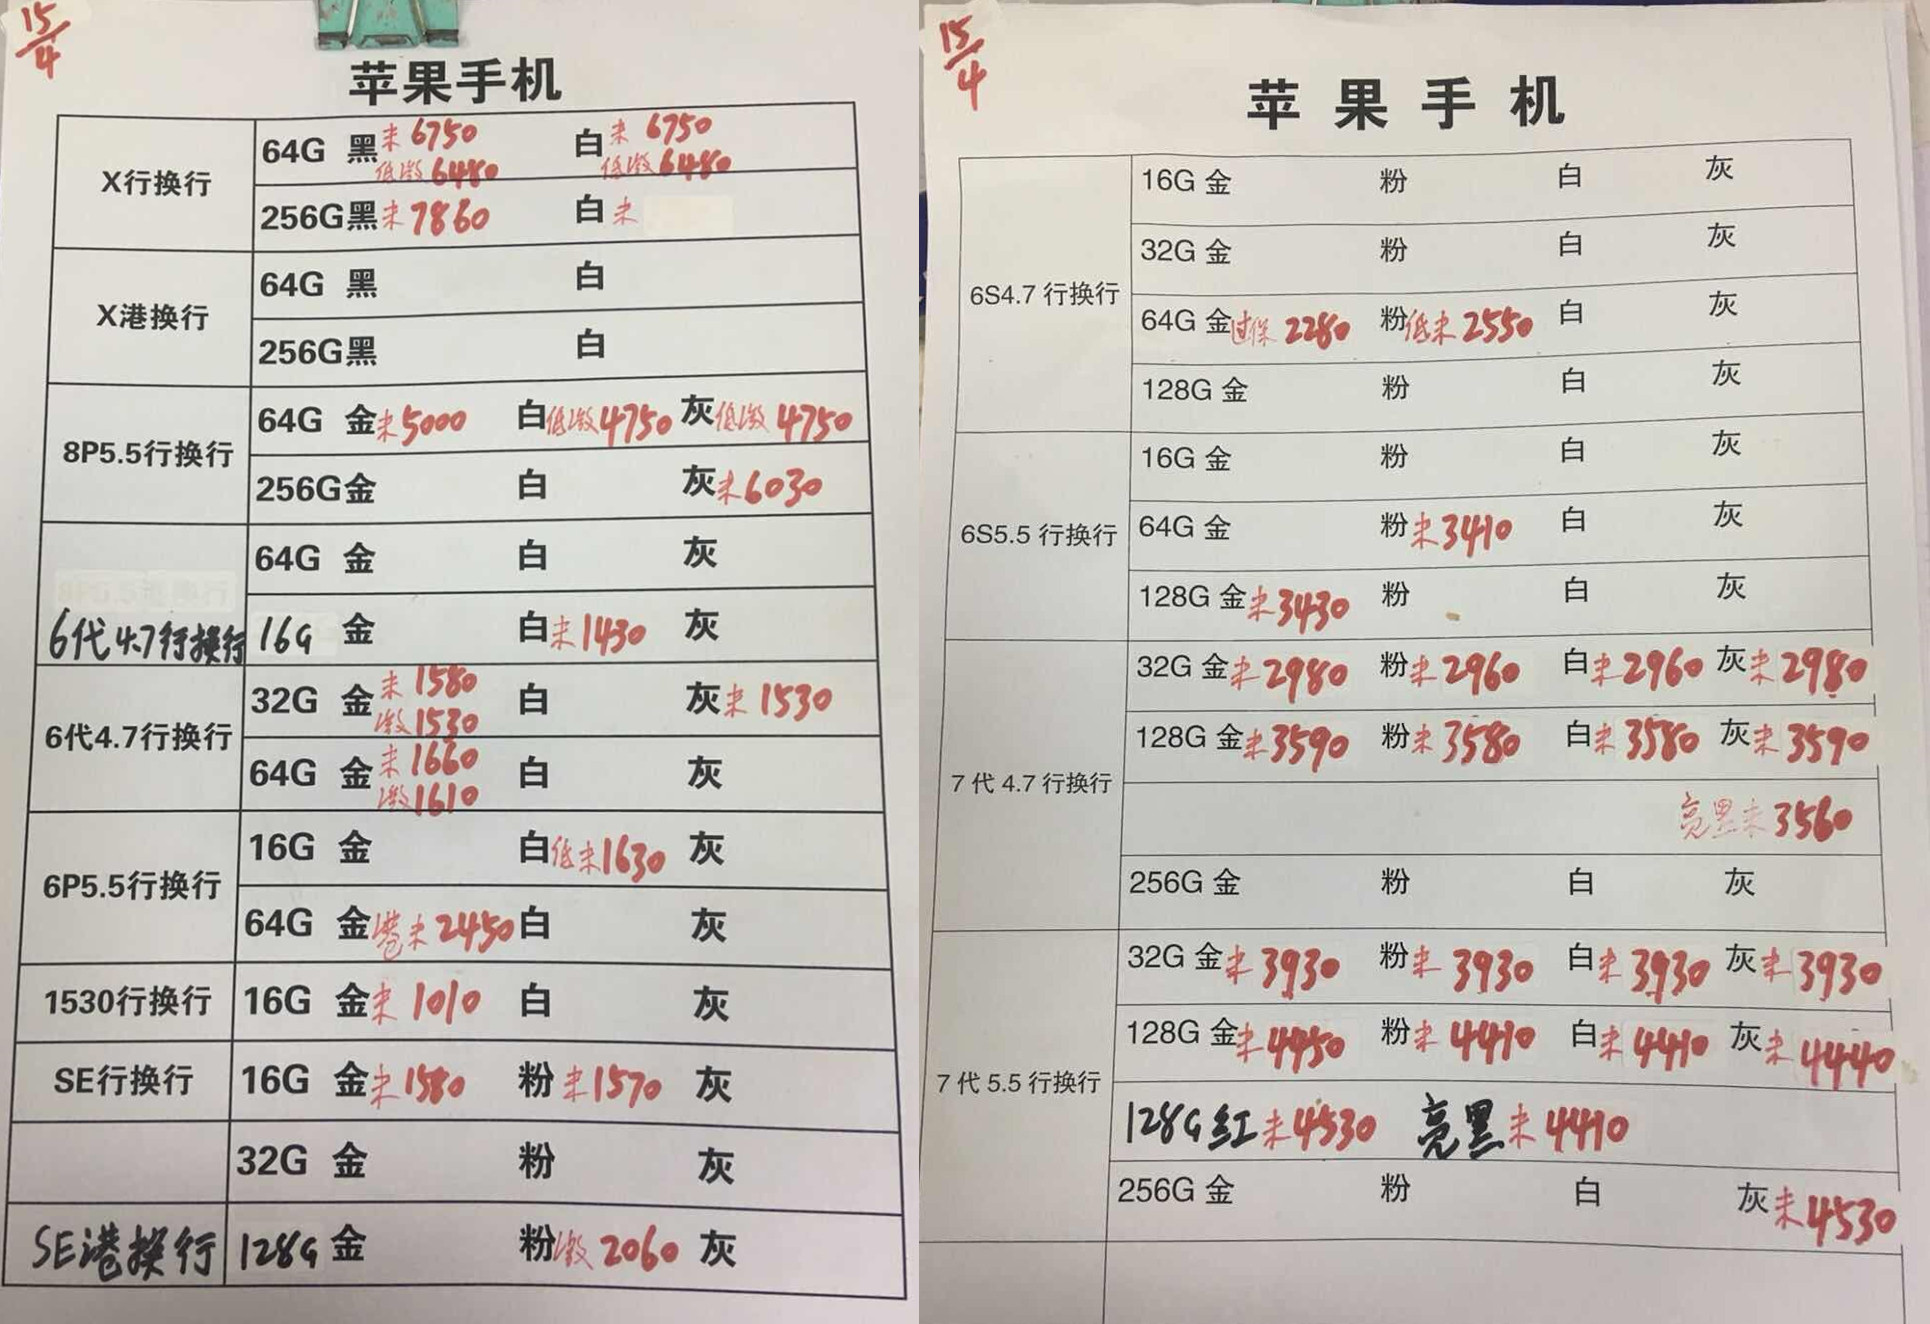 15/4
苹果手机
X行换行
64G 黑未6750 白未6750
低激6480 低激6480
256G黑未7860 白未
X港换行
64G 黑 白
256G黑 白
8P5.5行换行
64G 金未5000 白低激4750 灰低激4750
256G金 白 灰未6030
64G 金 白 灰
6代4.7行换行
16G 金 白未1430 灰
6代4.7行换行
32G 金未1580 白 灰未1530
激1530
64G 金未1660 白 灰
激1610
6P5.5行换行
16G 金 白低未1630 灰
64G 金港未2450 白 灰
1530行换行
16G 金未1010 白 灰
SE行换行
16G 金未1580 粉未1570 灰
32G 金 粉 灰
SE港换行
128G 金 粉激2060 灰
15/4
苹果手机
6S4.7行换行
16G 金 粉 白 灰
32G 金 粉 白 灰
64G 金过保2280 粉低未2550 白 灰
128G 金 粉 白 灰
6S5.5行换行
16G 金 粉 白 灰
64G 金 粉未3410 白 灰
128G 金未3430 粉 白 灰
7代4.7行换行
32G 金未2980 粉未2960 白未2960 灰未2980
128G 金未3590 粉未3580 白未3580 灰未3590
亮黑未3560
256G 金 粉 白 灰
7代5.5行换行
32G 金未3930 粉未3930 白未3930 灰未3930
128G 金未4450 粉未4410 白未4410 灰未4440
128G红未4530 亮黑未4410
256G 金 粉 白 灰未4530